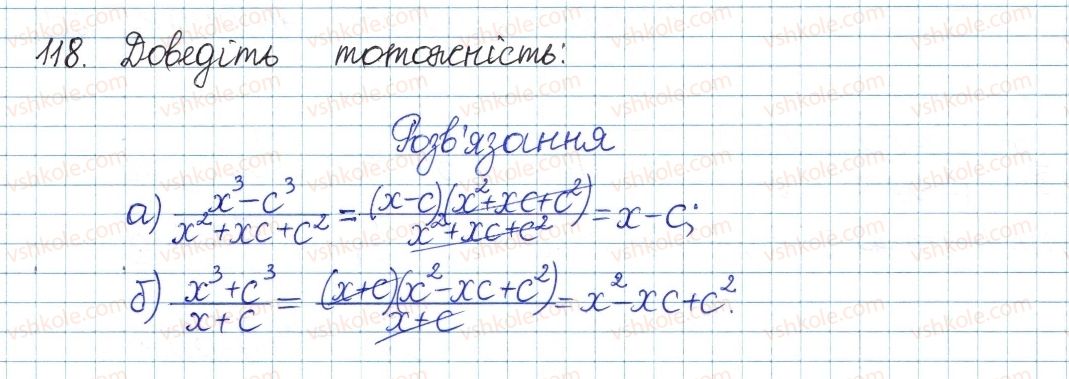 118. Доведіть тотожність:
Розв'язання
а) (x³-c³)/(x²+xc+c²) = ((x-c)(x²+xc+c²))/(x²+xc+c²) = x-c;
б) (x³+c³)/(x+c) = ((x+c)(x²-xc+c²))/(x+c) = x²-xc+c².